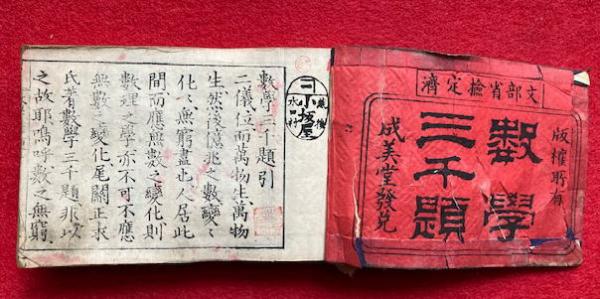 文部省檢定濟
版權所有
數學
三千題
成美堂發兌
數學三千題引
二儀位而萬物生萬物
生然後億兆之數變〻
化〻無窮盡也人居此
間而應無數之變化則
數理之學亦不可不應
無數之變化尾關正求
氏著數學三千題非以
之故耶嗚呼數之無窮